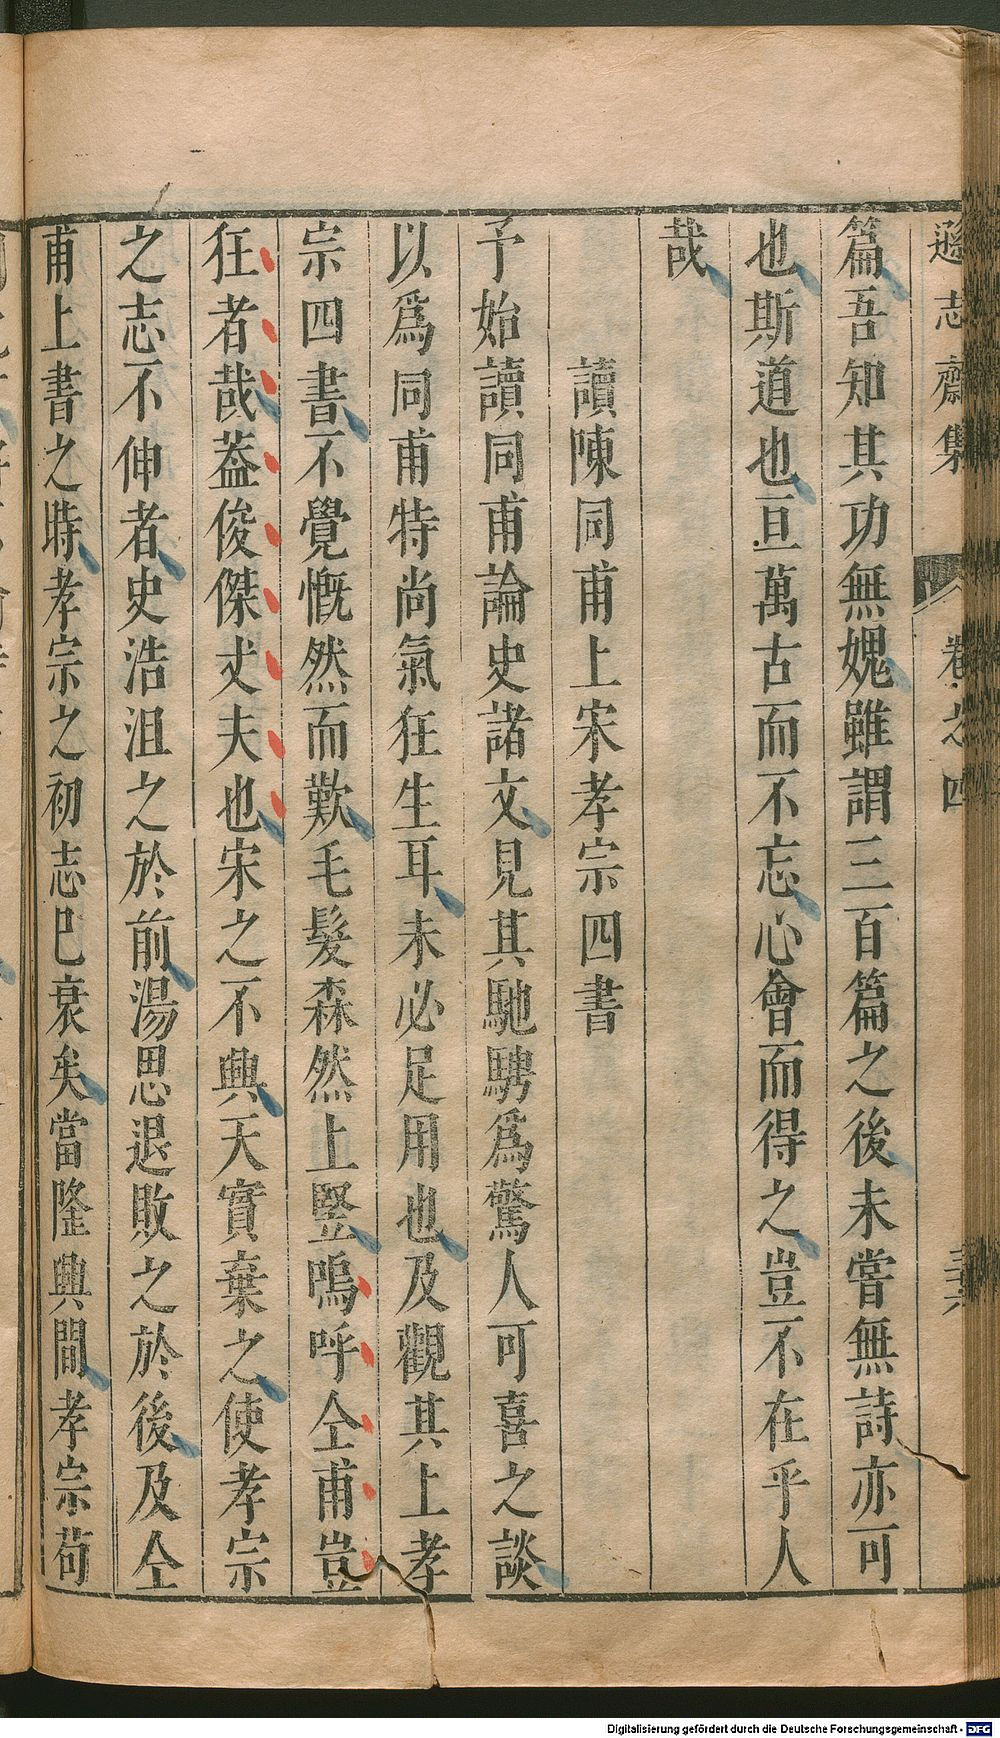 遜志齋集 卷之四 三六
篇吾知其功無媿雖謂三百篇之後未嘗無詩亦可
也斯道也亘萬古而不忘心會而得之豈不在乎人
哉
讀陳同甫上宋孝宗四書
予始讀同甫論史諸文見其馳騁爲驚人可喜之談
以爲同甫特尚氣狂生耳未必足用也及觀其上孝
宗四書不覺慨然而歎毛髮森然上竪嗚呼仝甫豈
狂者哉葢俊傑丈夫也宋之不興天實棄之使孝宗
之志不伸者史浩沮之於前湯思退敗之於後及仝
甫上書之時孝宗之初志巳衰矣當隆興間孝宗苟
Digitalisierung gefördert durch die Deutsche Forschungsgemeinschaft - DFG